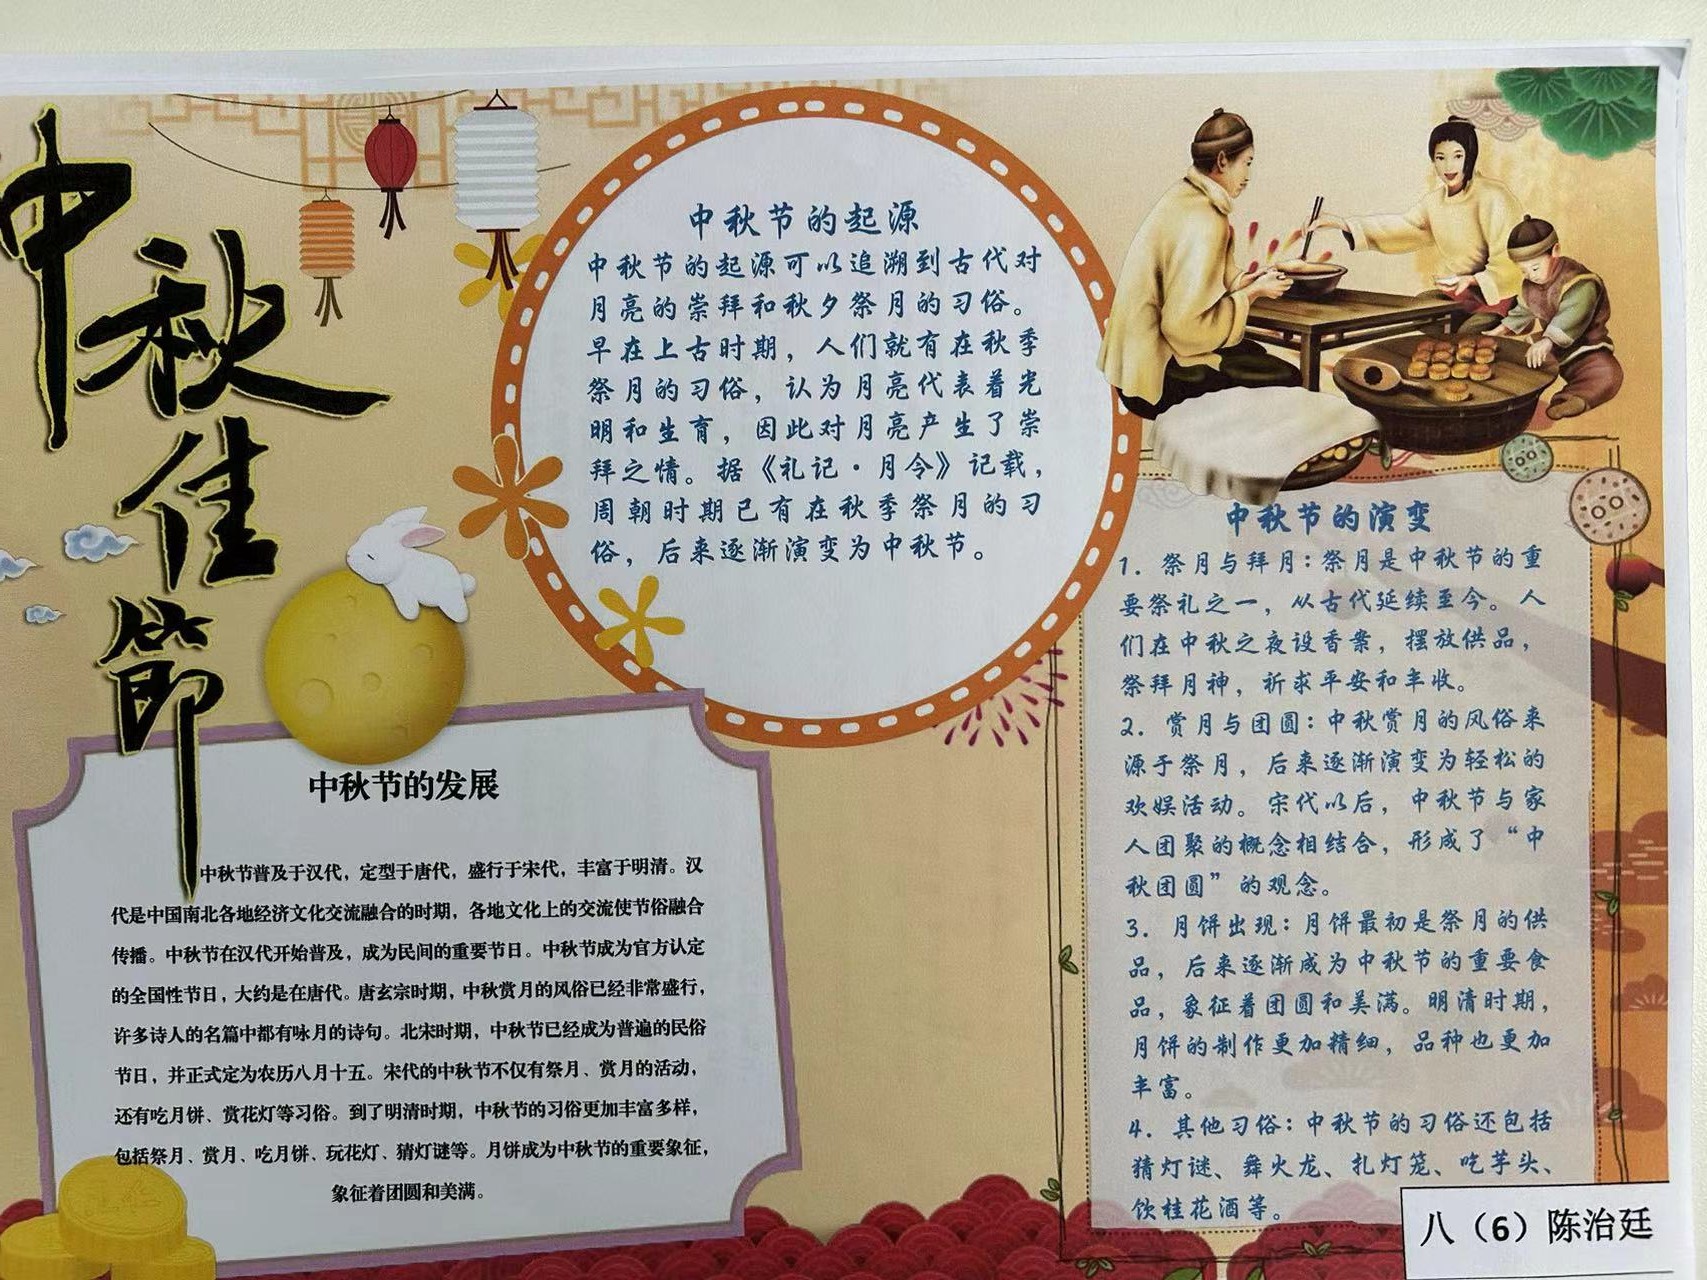 中秋佳節
中秋节的起源
中秋节的起源可以追溯到古代对
月亮的崇拜和秋夕祭月的习俗。
早在上古时期，人们就有在秋季
祭月的习俗，认为月亮代表着光
明和生育，因此对月亮产生了崇
拜之情。据《礼记·月令》记载，
周朝时期已有在秋季祭月的习
俗，后来逐渐演变为中秋节。
中秋节的发展
中秋节普及于汉代，定型于唐代，盛行于宋代，丰富于明清。汉
代是中国南北各地经济文化交流融合的时期，各地文化上的交流使节俗融合
传播。中秋节在汉代开始普及，成为民间的重要节日。中秋节成为官方认定
的全国性节日，大约是在唐代。唐玄宗时期，中秋赏月的风俗已经非常盛行，
许多诗人的名篇中都有咏月的诗句。北宋时期，中秋节已经成为普遍的民俗
节日，并正式定为农历八月十五。宋代的中秋节不仅有祭月、赏月的活动，
还有吃月饼、赏花灯等习俗。到了明清时期，中秋节的习俗更加丰富多样，
包括祭月、赏月、吃月饼、玩花灯、猜灯谜等。月饼成为中秋节的重要象征，
象征着团圆和美满。
中秋节的演变
1. 祭月与拜月：祭月是中秋节的重
要祭礼之一，从古代延续至今。人
们在中秋之夜设香案，摆放供品，
祭拜月神，祈求平安和丰收。
2. 赏月与团圆：中秋赏月的风俗来
源于祭月，后来逐渐演变为轻松的
欢娱活动。宋代以后，中秋节与家
人团聚的概念相结合，形成了“中
秋团圆”的观念。
3. 月饼出现：月饼最初是祭月的供
品，后来逐渐成为中秋节的重要食
品，象征着团圆和美满。明清时期，
月饼的制作更加精细，品种也更加
丰富。
4. 其他习俗：中秋节的习俗还包括
猜灯谜、舞火龙、扎灯笼、吃芋头、
饮桂花酒等。
八（6）陈治廷